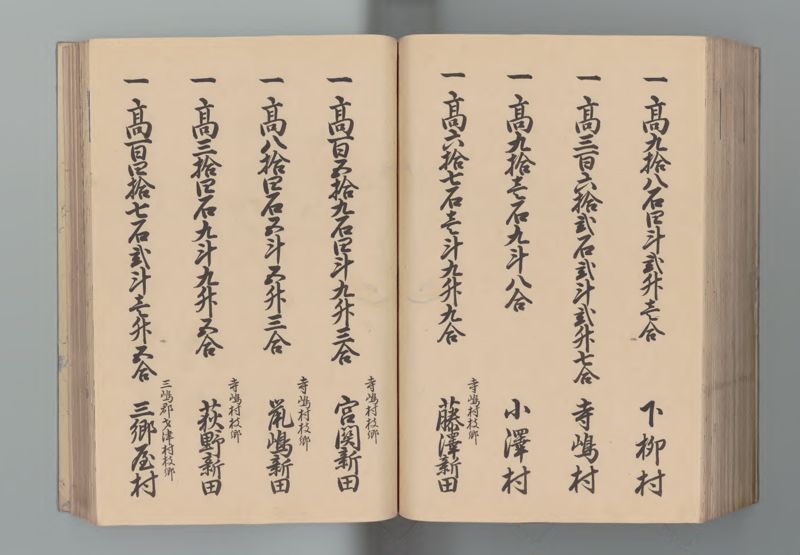 一 高九拾八石四斗弐升壱合
下柳村
一 高三百六拾弐石弐斗弐升七合
寺嶋村
一 高九拾壱石九斗八合
小澤村
一 高六拾七石壱斗九升九合
寺嶋村枝郷
藤澤新田
一 高百五拾九石四斗九升三合
寺嶋村枝郷
宮関新田
一 高八拾四石五斗五升三合
寺嶋村枝郷
鼠嶋新田
一 高三拾四石九斗九升五合
寺嶋村枝郷
荻野新田
一 高百四拾七石弐斗壱升五合
三嶋郡 津村枝郷
三郷屋村